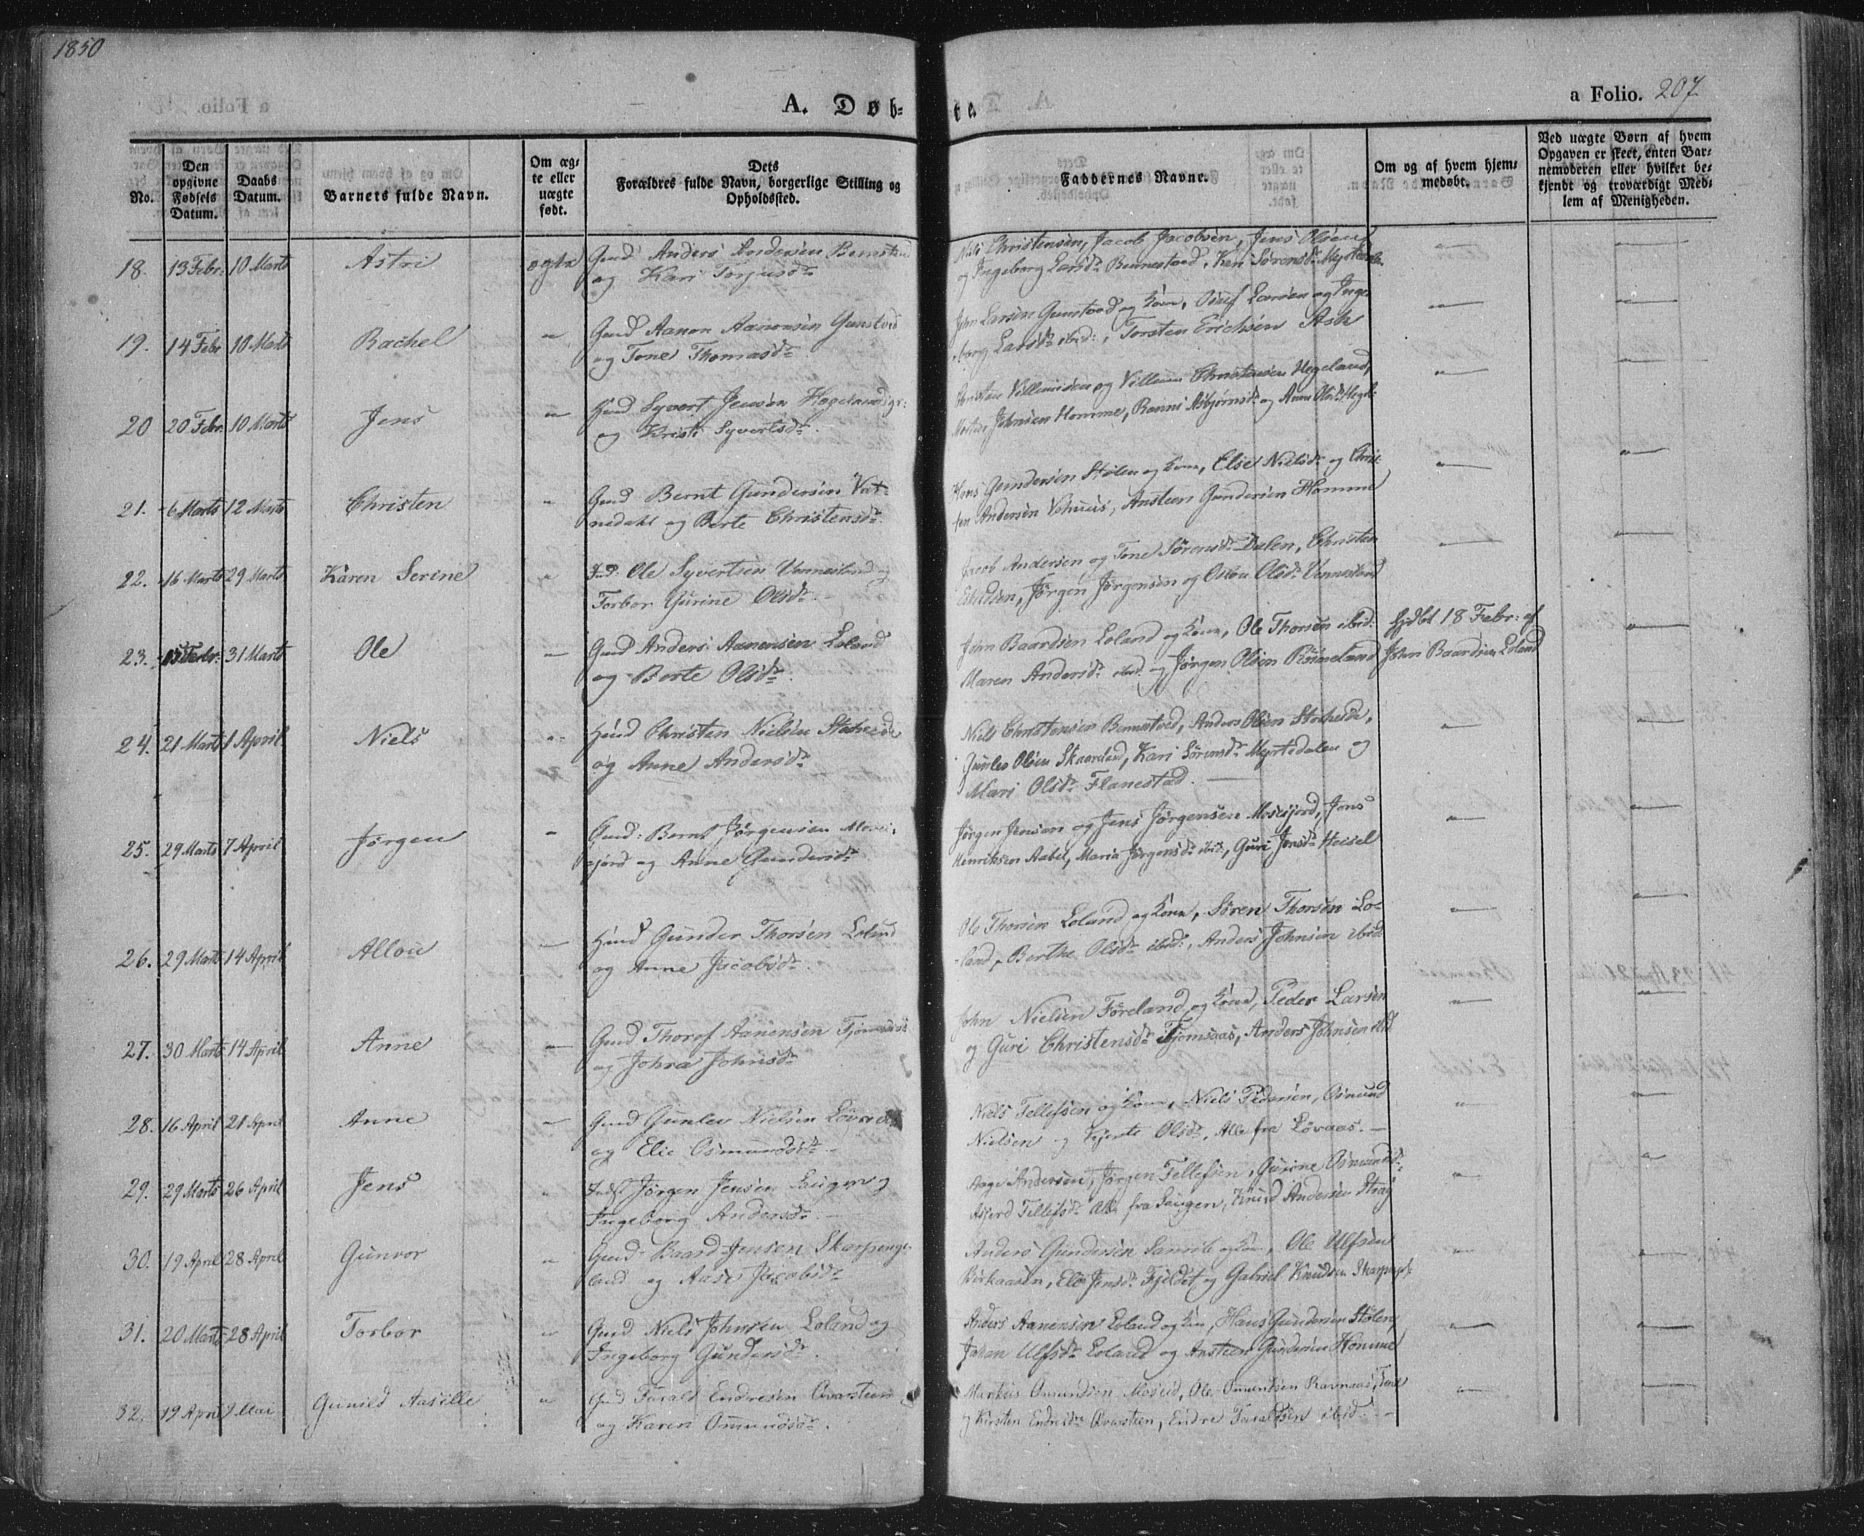 1850
A. Døb-
te.
a Folio. 207
No.
Den opgivne Fødsels Datum.
Daabs Datum.
Barnets fulde Navn.
Om ægte eller uægte født.
Dets
Forældres fulde Navn, borgerlige Stilling og
Opholdssted.
Faddernes Navne.
Om og af hvem hjemmedøbt.
Ved uægte Børn af hvem
Opgaven er skeet, enten Barnemoderen eller hvilket bekjendt og troværdigt Medlem af Menigheden.
18. 13 Febr. 10 Marts Astri ægte Gmd Anders
og Kari Torjusdr
Niels Christensen, Jacob Jacobsen, Jens Olsen
og Ingeborg Larsdr Bennestved, Kari Sørensdr
19. 14 Febr 10 Marts Rachel " Gmd Aanon Aanonsen Gunstved
og Tone Thomasdr
John Larsen Gunstved og Kone, Larsen og Inge-
borg Larsdr ibid:, Torsten Erichsen Ask
20 20 Febr. 10 Marts Jens " Syvert Jensen Hægeland
og Kristi Syvertsdr.
Villumsen og Villum Christensen Hegeland,
Johnsen Homme, Ranni Asbjørnsdr og Anne Olsdr
21. 6 Marts 12 Marts Christen " Gmd Bernt Gundersen Vat-
nedahl og Berte Christensdr.
Hans Gundersen Stølen og Kone, Else Nielsdr og Chris-
ten Andersen Vehuus, Ansteen Gundersen Homme
22. 16 Marts 29 Marts Karen Serine " Ole Syvertsen Vennestund og
Torbor Gurine Olsdr.
Jacob Andersen og Tone Sørensdr Dalen, Christen
Jørgen Jørgensen og Olsdr
23. 15 Febr: 31 Marts Ole " Gmd Anders Aanensen Loland
og Berte Olsdr.
John Baardsen Loland og Kone, Ole Thorsen ibid.
Maren Andersdr ibid. og Jørgen Olsen
hjdbt 18 Febr: af
John Baardsen Loland
24. 21 Marts 1 April Niels " Christen Nielsen
og Anne Andersdr
Niels Christensen Bennestved, Anders Olsen
Gunlev Olsen Skaarland, Kari Sørensdr Myrtedalen og
Mari Olsdr Flanestad.
25. 29 Marts 7 April Jørgen " Gmd: Bernt Jørgensen Mosei-
fjord og Anne Gundersdr
Jørgen Jensen og Jens Jørgensen Moseifjord, Jens
Henriksen Aabel, Maria Jørgensdr ibid:, Guri Jensdr Hessel
26. 29 Marts 14 April Allou " Gunder Thorsen Loland
og Anne Jacobsdr.
Ole Thorsen Loland og Kone, Søren Thorsen Lo-
land, Berthe Olsdr ibid:, Anders Johnsen ibid
27. 30 Marts 14 April Anne " Gmd Thorof Aanensen
og Johra Johnsdr
John Nielsen Føreland og Kone, Peder Larsen
og Guri Christensdr Fjomsaas, Anders Johnsen ibid
28. 16 April 21 April Anne " Gmd Gunlev Nielsen
og Elie Osmundsdr
Niels Tellefsen og Kone, Niels Pedersen, Osmund
Nielsen og Olsdr, Alle fra Løvaas.
29. 29 Marts 26 April Jens " Jørgen Jensen Saugen og
Ingeborg Andersdr.
Aage Andersen, Jørgen Tellefsen, Gurine Osmundsdr
Tellefsdr Alle fra Saugen, Knud Andersen Stray
30. 19 April 28 April Gunvor " Gmd: Baard Jensen Skarpenge-
land og Aase Jacobsdr
Anders Gundersen og Kone, Ole Ulfsen
Birkaasen, Jensdr Fjeldet og Gabriel Knudsen
31. 20 Marts 28 April Torbor " Gmd Niels Johnsen Loland og
Ingeborg Gundersdr.
Anders Aanensen Loland og Kone, Hans Gundersen Stølen,
Johan Ulfsdr Loland og Ansteen Gundersen Homme
32. 19 April 9 Mai Gunild Aasille " Gmd Taral Endresen
og Karen Omundsdr.
Markus Omundsen Moseid, Ole Omundsen Ravnaas,
og Kirsten Endresdr, Endre Taraldsen ibid